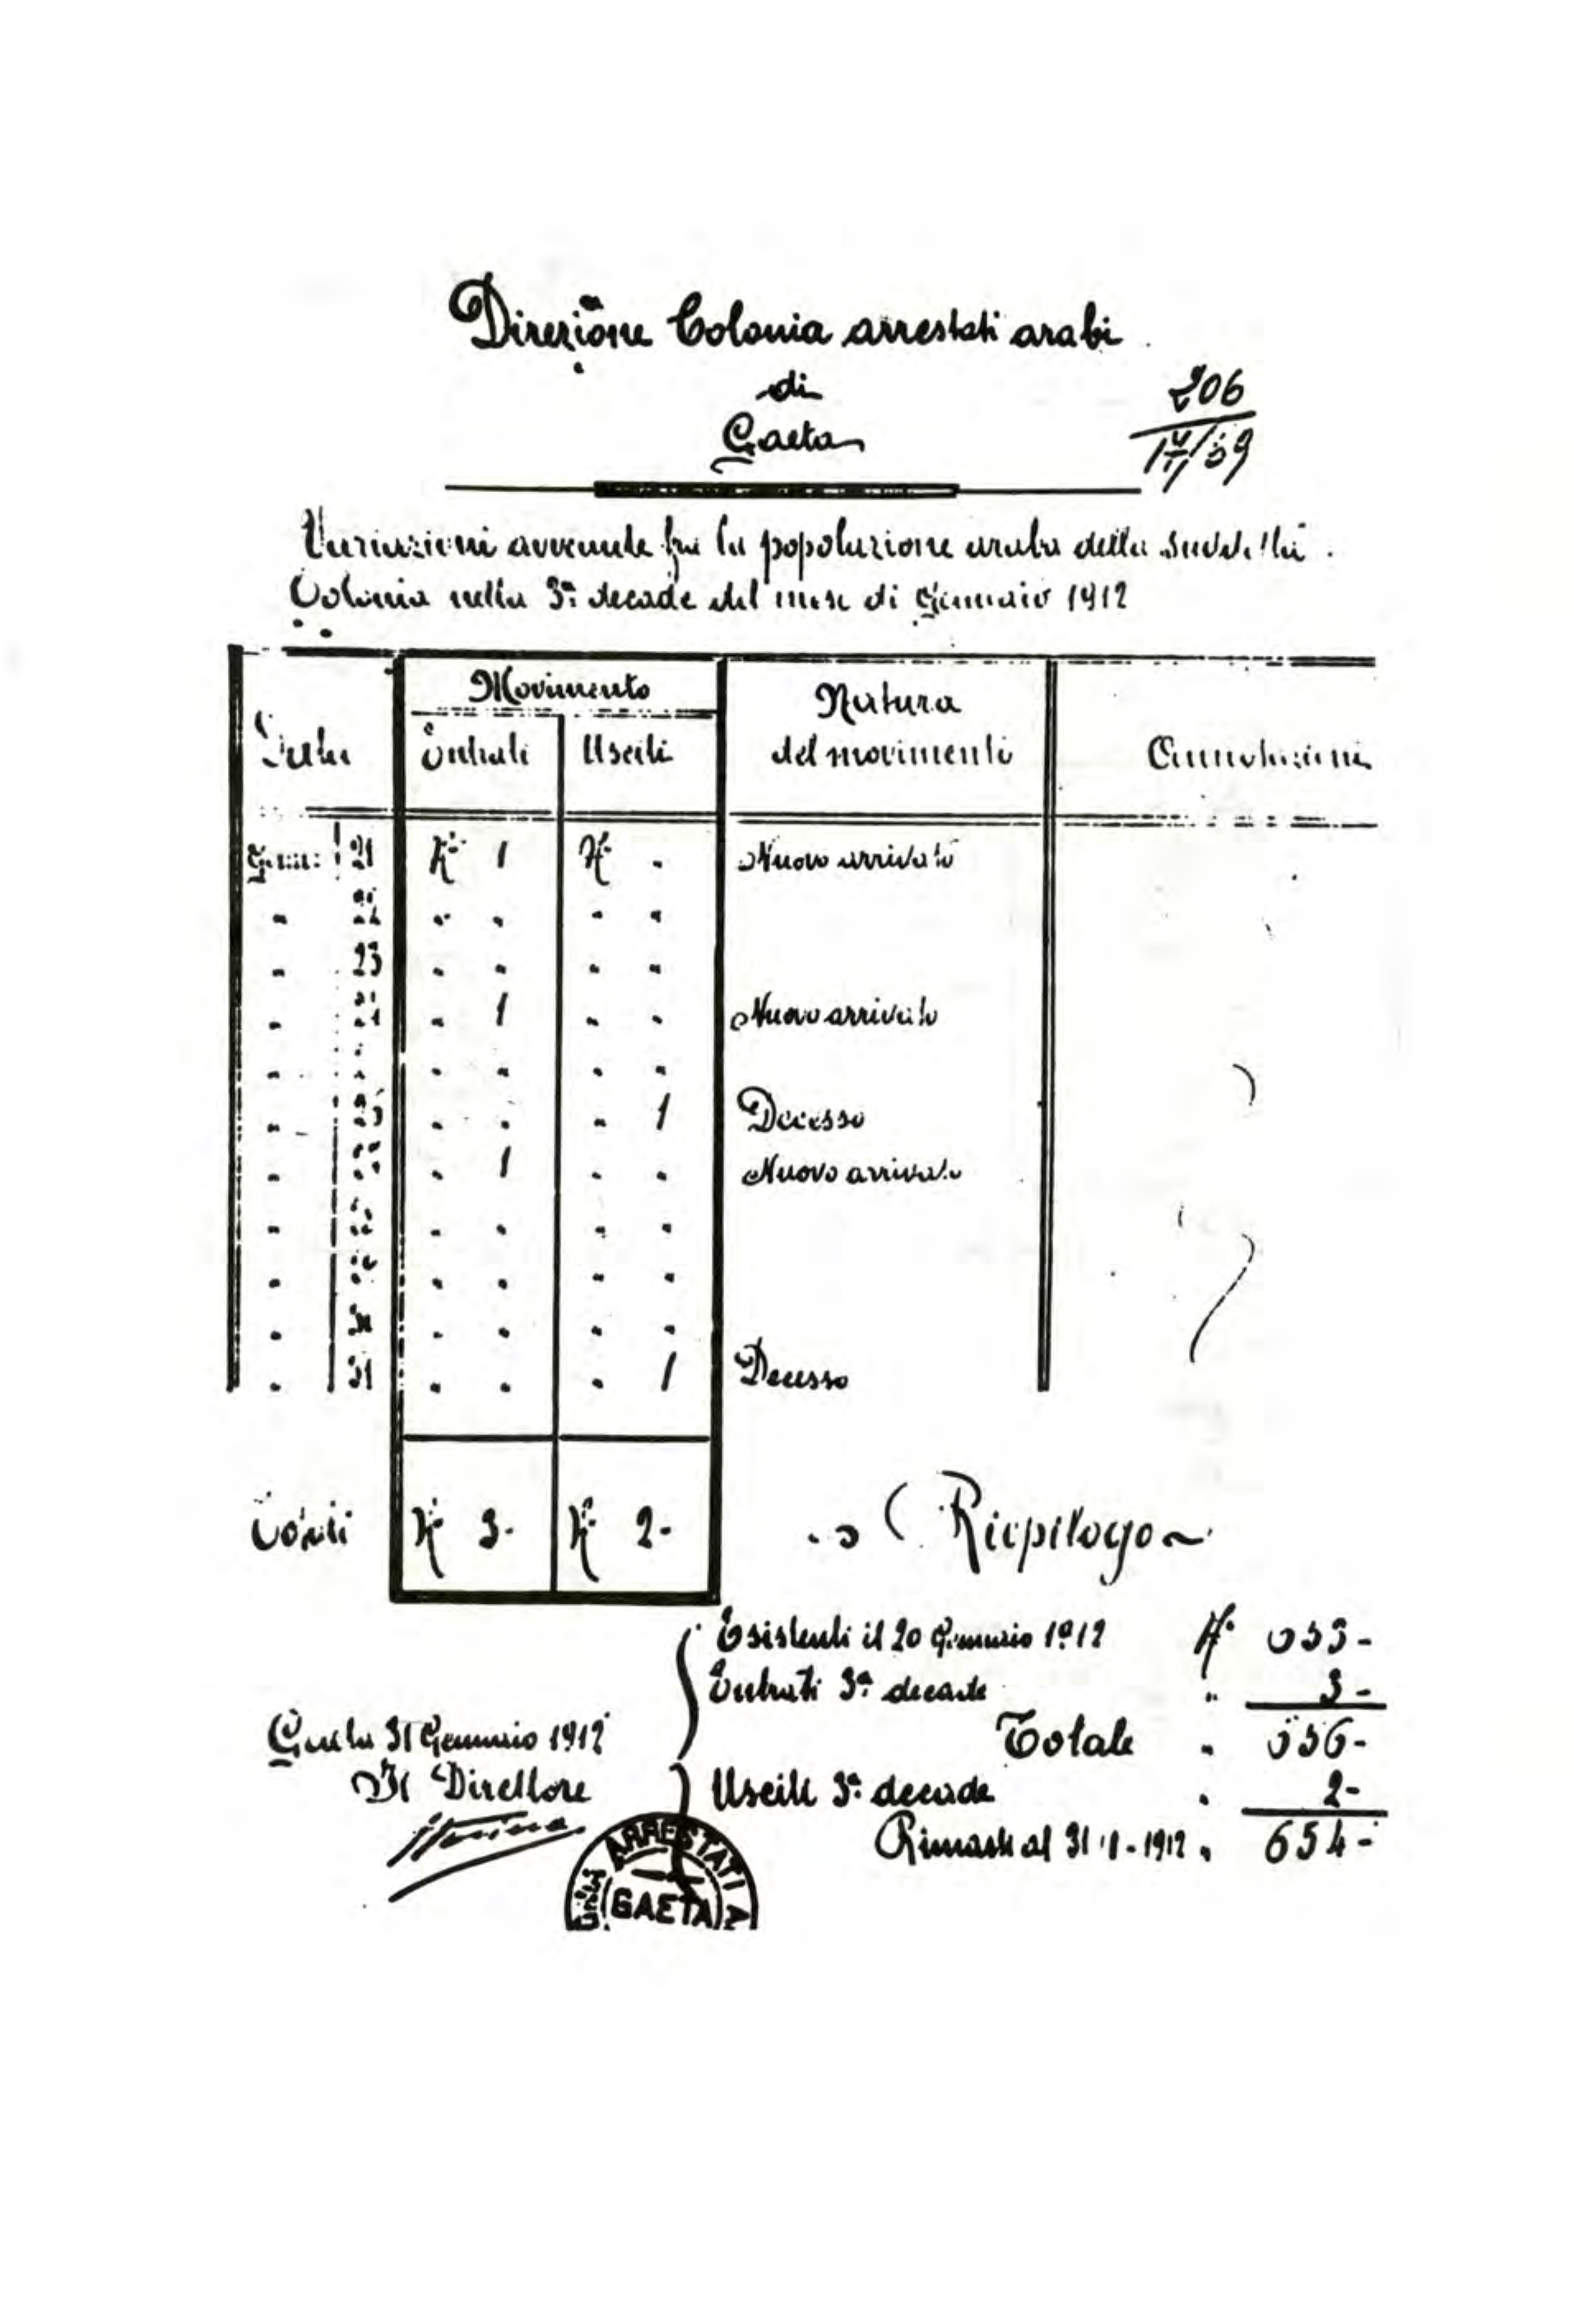 Direzione Colonia arrestati arabi
di
Gaeta
206
Variazioni avvenute fra la popolazione araba della suddetta
Colonia nella 3ª decade del mese di Gennaio 1912
Data Movimento Natura del movimenti Annotazioni
Entrati Usciti
Genn: 21 Nº 1 Nº " Nuovo arrivato
" 22 " " " "
" 23 " " " "
" 24 " 1 " " Nuovo arrivato
" " " " "
" " " " 1 Decesso
" " 1 " " Nuovo arrivato
" " " " "
" " " " "
" 30 " " " "
" 31 " " " 1 Decesso
Totali Nº 3- Nº 2-
Riepilogo
Esistenti il 20 Gennaio 1912 Nº 653-
Entrati 3ª decade " 3-
Totale " 656-
Usciti 3ª decade " 2-
Rimasti al 31-1-1912 " 654-
Gaeta 31 Gennaio 1912
Il Direttore
ARRESTATI A
GAETA